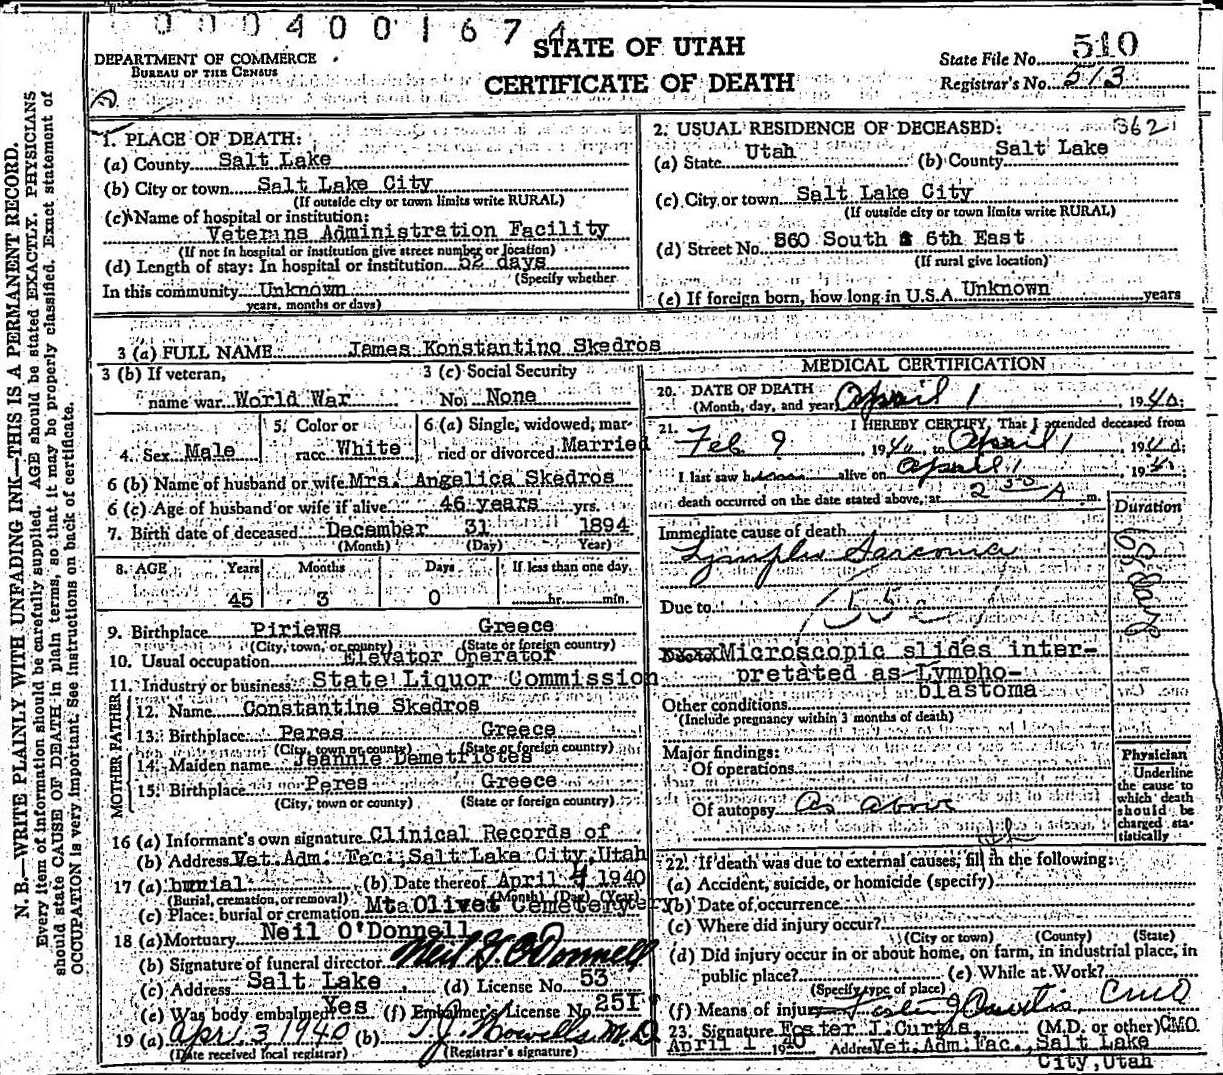 0004001674
STATE OF UTAH
CERTIFICATE OF DEATH
DEPARTMENT OF COMMERCE
BUREAU OF THE CENSUS
State File No. 510
Registrar's No. 513
N. B.—WRITE PLAINLY WITH UNFADING INK—THIS IS A PERMANENT RECORD.
Every item of information should be carefully supplied. AGE should be stated EXACTLY. PHYSICIANS
should state CAUSE OF DEATH in plain terms, so that it may be properly classified. Exact statement of
OCCUPATION is very important. See instructions on back of certificate.
1. PLACE OF DEATH:
(a) County Salt Lake
(b) City or town Salt Lake City
(If outside city or town limits write RURAL)
(c) Name of hospital or institution:
Veterans Administration Facility
(If not in hospital or institution give street number or location)
(d) Length of stay: In hospital or institution 52 days
(Specify whether
In this community Unknown
years, months or days)
2. USUAL RESIDENCE OF DECEASED: 362
(a) State Utah (b) County Salt Lake
(c) City or town Salt Lake City
(If outside city or town limits write RURAL)
(d) Street No. 560 South 6th East
(If rural give location)
(e) If foreign born, how long in U.S.A. Unknown years
3 (a) FULL NAME James Konstantino Skedros
3 (b) If veteran, 3 (c) Social Security
name war World War No. None
4. Sex Male 5. Color or race White 6 (a) Single, widowed, married or divorced Married
6 (b) Name of husband or wife Mrs. Angelica Skedros
6 (c) Age of husband or wife if alive 46 years yrs.
7. Birth date of deceased December 31 1894
(Month) (Day) Year)
8. AGE Years Months Days If less than one day
45 3 0 hr. min.
9. Birthplace Piriews Greece
(City, town, or county) (State or foreign country)
10. Usual occupation Elevator Operator
11. Industry or business State Liquor Commission
FATHER
12. Name Constantine Skedros
13. Birthplace Peres Greece
(City, town or county) (State or foreign country)
MOTHER
14. Maiden name Jeannie Demetriotes
15. Birthplace Peres Greece
(City, town or county) (State or foreign country)
16 (a) Informant's own signature Clinical Records of
(b) Address Vet. Adm. Fac., Salt Lake City, Utah
17 (a) burial (b) Date thereof April 4 1940
(Burial, cremation, or removal) (Month) (Day) (Year)
(c) Place: burial or cremation Mt. Olivet Cemetery
18 (a) Mortuary Neil O'Donnell
(b) Signature of funeral director Neil G. O'Donnell
(c) Address Salt Lake (d) License No. 53
(e) Was body embalmed Yes (f) Embalmer's License No. 251
19 (a) Apr. 3 1940 (b) T. J. Howells M. D.
(Date received local registrar) (Registrar's signature)
MEDICAL CERTIFICATION
20. DATE OF DEATH April 1 1940
(Month, day, and year)
21. I HEREBY CERTIFY, That I attended deceased from
Feb 9 1940 to April 1 1940
I last saw him alive on April 1 1940
death occurred on the date stated above, at 2 35 A m.
Duration
Immediate cause of death
Lympho Sarcoma
Due to 55c
Microscopic slides inter-
pretated as Lympho-
blastoma
Other conditions
(Include pregnancy within 3 months of death)
Major findings:
Of operations
Of autopsy As above
Physician
Underline
the cause to
which death
should be
charged sta-
tistically
22. If death was due to external causes, fill in the following:
(a) Accident, suicide, or homicide (specify)
(b) Date of occurrence
(c) Where did injury occur?
(City or town) (County) (State)
(d) Did injury occur in or about home, on farm, in industrial place, in
public place? (e) While at Work?
(Specify type of place)
(f) Means of injury Foster J Curtis CMO
23. Signature Foster J. Curtis, (M.D. or other) CMO.
April 1 1940 Address Vet. Adm. Fac., Salt Lake
City, Utah